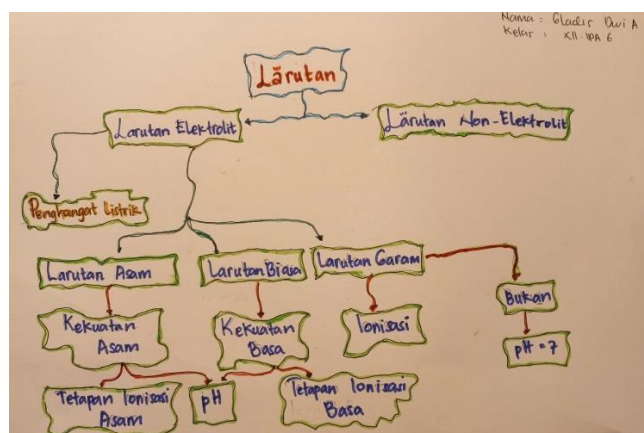 Nama : Gladis Dwi A
Kelas : XII-IPA 6
Lärutan
Larutan Elektrolit
Lärutan Non-Elektrolit
Penghangat Listrik
Larutan Asam
Larutan Biasa
Larutan Garam
Bukan
Kekuatan
Asam
Kekuatan
Basa
Ionisasi
pH = 7
Tetapan Ionisasi
Asam
pH
Tetapan Ionisasi
Basa